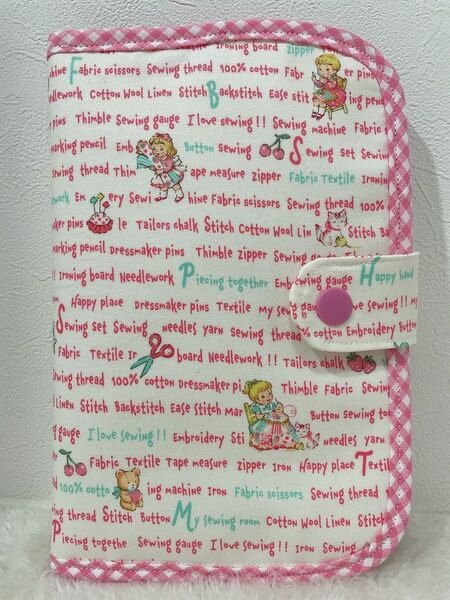 Ironing board zipper
hine Fabric scissors Sewing thread 100% cotton Fabr er pins
dlework Cotton Wool Linen Stitch Backstitch Ease stit ing penc
pins Thimble Sewing gauge I love sewing!! Sewing machine Fabric s
marking pencil Emb Button Sewing Sewing set Sewing
sewing thread Thim ape measure zipper Fabric Textile Ironin
work Em ery Sewi hine Fabric scissors Sewing thread 100%
maker pins le Tailors chalk Stitch Cotton Wool Lin Stitch Ba
marking pencil Dressmaker pins Thimble zipper Sewing
l Ironing board Needlework Piecing together Emb wing gauge Happy hand
Happy place Dressmaker pins Textile My sewing ve sewing!! My
Sewing set Sewing needles yarn Sewing thread % cotton Embroidery Button
Fabric Textile Ir board Needlework!! Tailors chalk
wing thread 100% cotton Dressmaker pin Thimble Fabric Sewing
l Linen Stitch Backstitch Ease Stitch mar Button sewing to
g gauge I love sewing!! Embroidery Sti needles yarn
Fabric Textile Tape measure zipper Iron Happy place Textil
100% cotto ing machine Iron Fabric scissors Sewing thread
ng thread Stitch Button My sewing room Cotton Wool Linen Stitch
Piecing togethe Sewing gauge I love sewing!! Iron Sewing